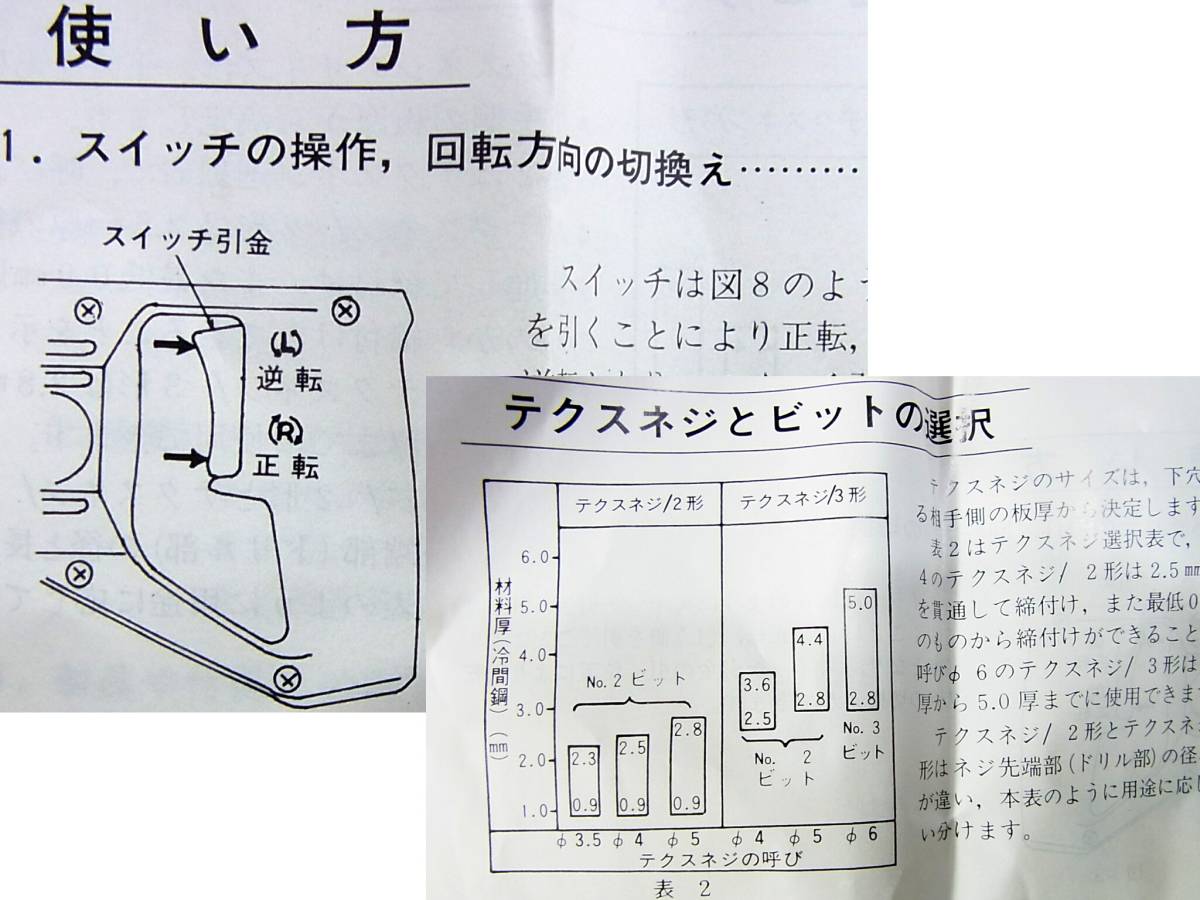 使い方
1．スイッチの操作，回転方向の切換え………
スイッチ引金
(L)
逆転
(R)
正転
スイッチは図8のよう
を引くことにより正転，
テクスネジとビットの選択
テクスネジ/2形
テクスネジ/3形
材料厚(冷間鋼)(mm)
6.0
5.0
4.0
3.0
2.0
1.0
No.2ビット
2.3
0.9
2.5
0.9
2.8
0.9
3.6
2.5
4.4
2.8
5.0
2.8
No. 2
ビット
No. 3
ビット
φ3.5 φ4 φ5 φ4 φ5 φ6
テクスネジの呼び
表 2
テクスネジのサイズは，下穴
る相手側の板厚から決定します
表2はテクスネジ選択表で，
4のテクスネジ/ 2形は2.5mm
を貫通して締付け，また最低0
のものから締付けができること
呼びφ6のテクスネジ/ 3形は
厚から5.0厚までに使用できま
テクスネジ/ 2形とテクスネ
形はネジ先端部(ドリル部)の径
が違い，本表のように用途に応じ
い分けます。